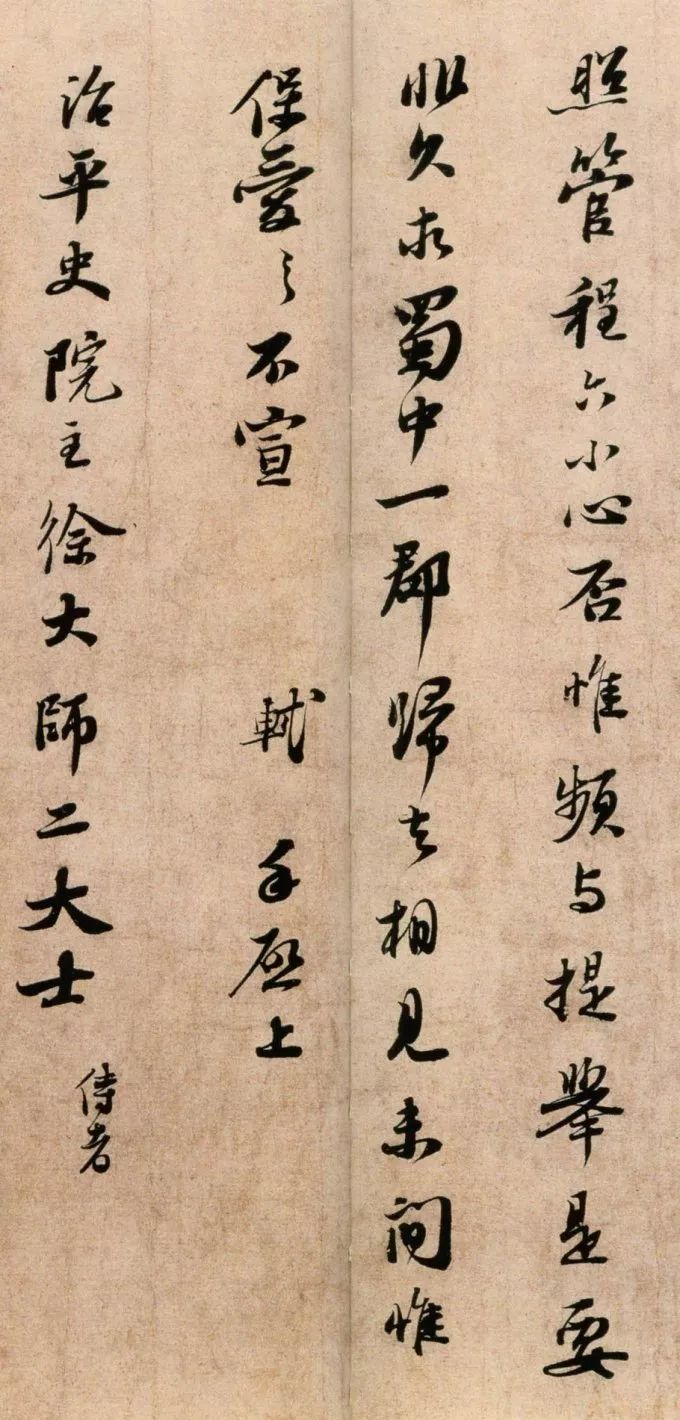 照管程六小心否惟頻与提舉是要
非久求蜀中一郡歸去相見未間惟
保愛之不宣　軾　手啓上
治平史院主徐大師二大士　侍者